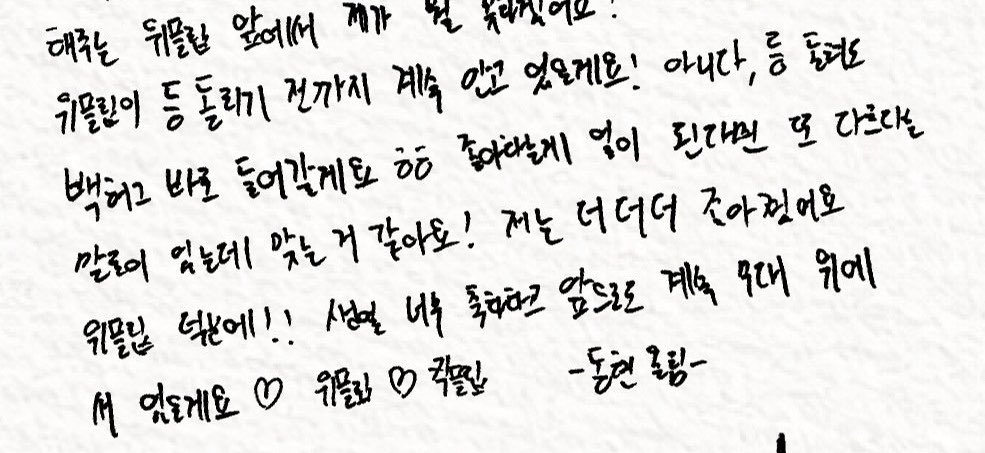 해주는 위플립 앞에서 제가 뭘 못하겠어요!
위플립이 등 돌리기 전까지 계속 안고 있을게요! 아니다, 등 돌려도
백허그 바로 들어갈게요 ㅎㅎ 좋아하는게 일이 된다면 또 다르다는
말들이 있는데 맞는 거 같아요! 저는 더 더 더 좋아졌어요
위플립 덕분에!! 생일 너무 축하하고 앞으로도 계속 무대 위에
서 있을게요 ♡ 위플립 ♡
-동현 올림-